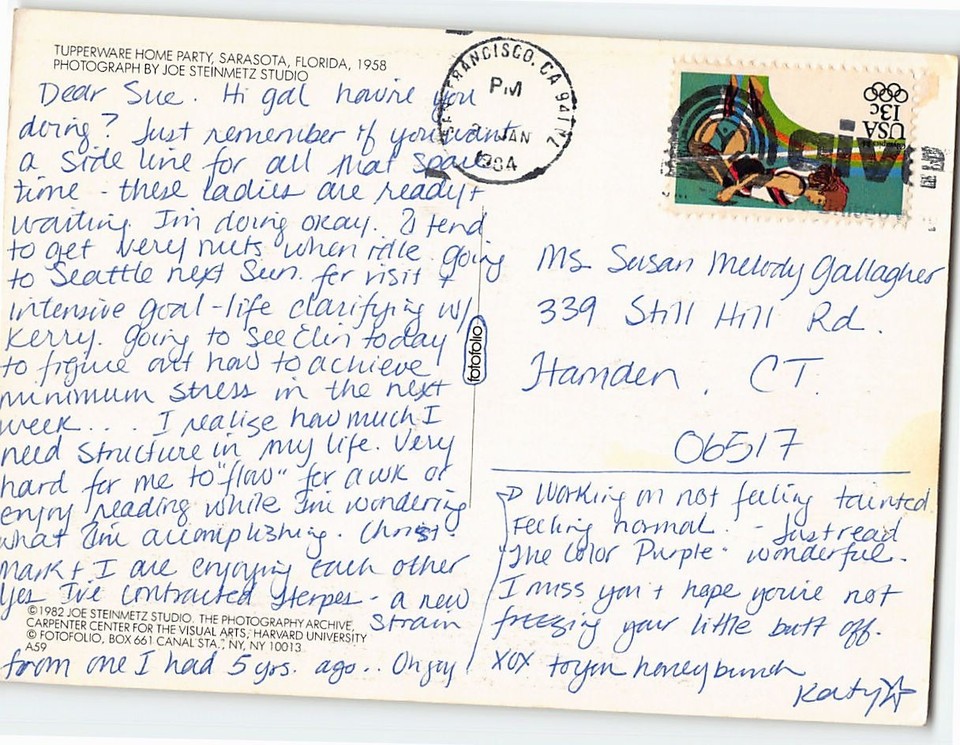 TUPPERWARE HOME PARTY, SARASOTA, FLORIDA, 1958
PHOTOGRAPH BY JOE STEINMETZ STUDIO
Dear Sue. Hi gal how're you
doing? Just remember if you want
a side line for all that spare
time - these ladies are ready +
waiting. I'm doing okay. I tend
to get very nuts when idle. going
to Seattle next Sun. for visit +
intensive goal-life clarifying w/
Kerry. going to see Elin today
to figure out how to achieve
minimum stress in the next
week.... I realize how much I
need structure in my life. Very
hard for me to "flow" for a wk or
enjoy reading while I'm wondering
what I'm accomplishing. Christ.
Mark + I are enjoying each other
Yes I've contracted Herpes - a new
strain
©1982 JOE STEINMETZ STUDIO. THE PHOTOGRAPHY ARCHIVE,
CARPENTER CENTER FOR THE VISUAL ARTS, HARVARD UNIVERSITY
© FOTOFOLIO, BOX 661 CANAL STA., NY, NY 10013
A59
from one I had 5 yrs. ago.. Oh joy!
fotofolio
FRANCISCO, CA 941
PM
JAN
1984
USA
13c
Ms Susan Melody Gallagher
339 Still Hill Rd.
Hamden, CT.
06517
Working on not feeling tainted
Feeling normal. - Just read
"The Color Purple" wonderful.
I miss you + hope you're not
freezing your little butt off.
XOX to you honeybunch
Katy☆